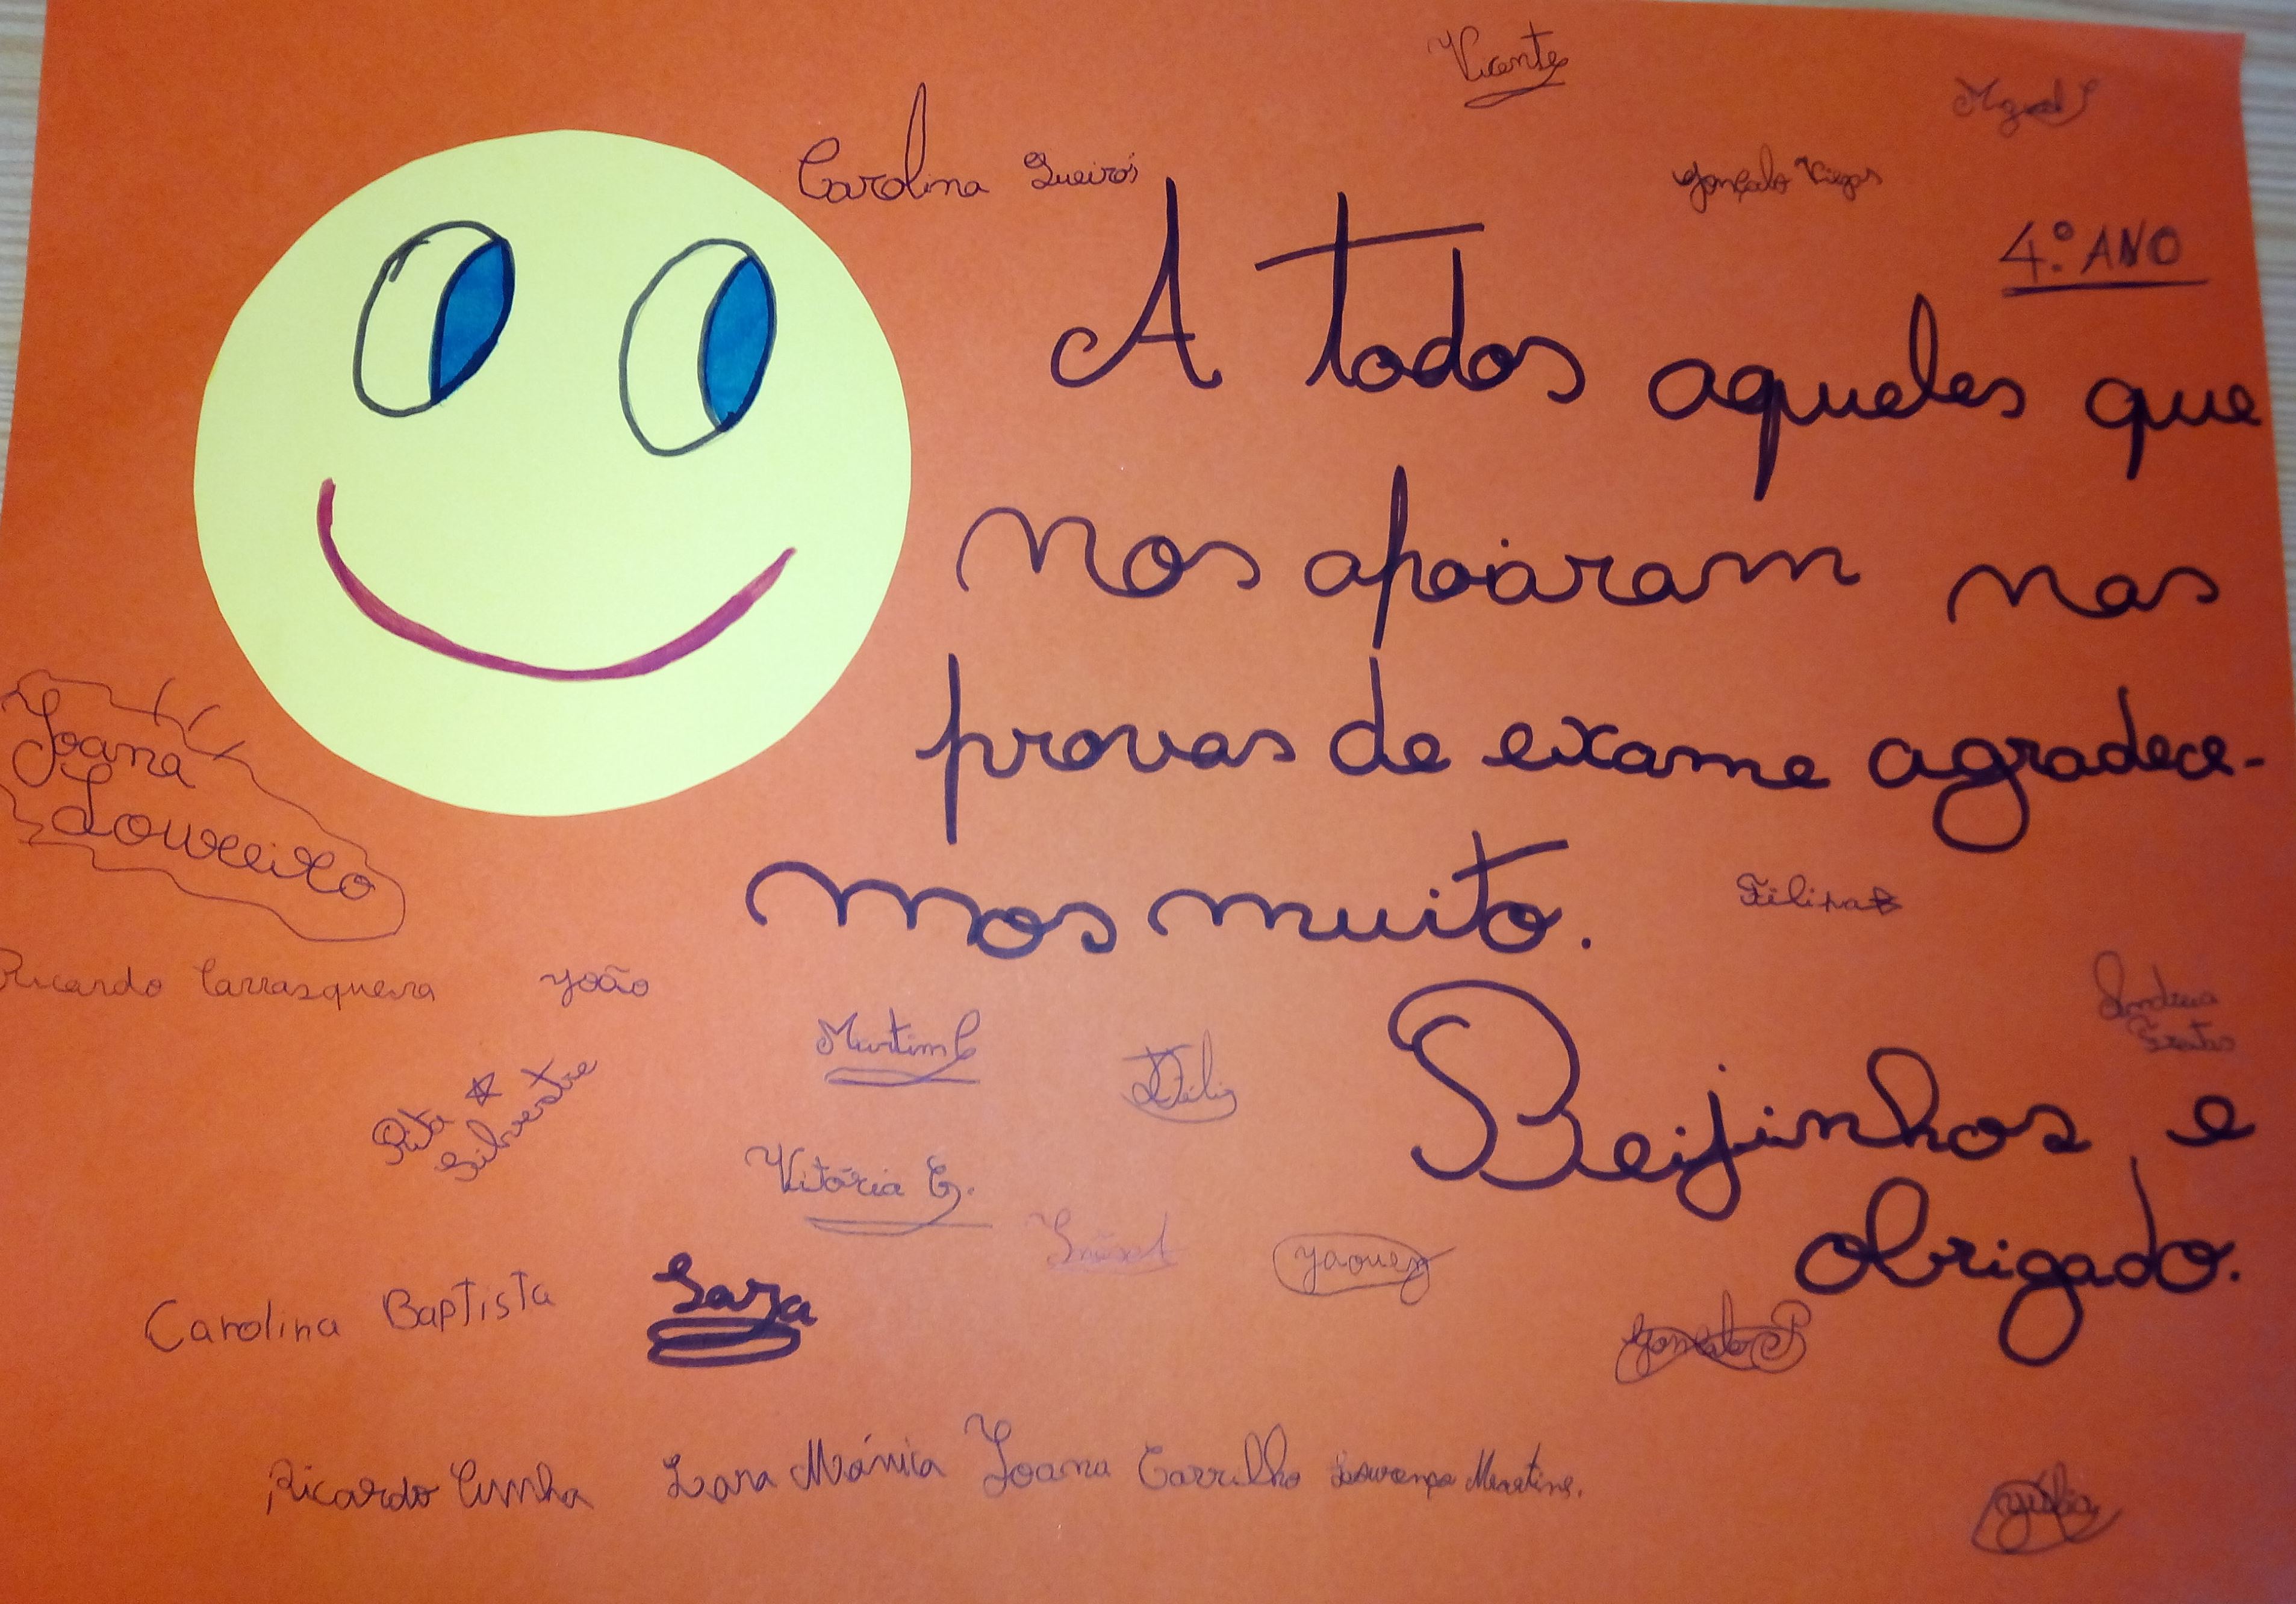 Vicente
Carolina Queirós
Gonçalo Viegas
4.º ANO
A todos aqueles que
nos apoiaram nas
provas de exame agradece-
mos muito.
Joana
Loureiro
Filipa
Ricardo Carrasqueira
João
Andreia
Freitas
Martim C
Beijinhos e
obrigado.
Rita
Silvestre
Vitória G.
Carolina Baptista
Sara
Gonçalo P
Ricardo Cunha
Lara Mónica
Joana Carrilho
Lourenço Martins.